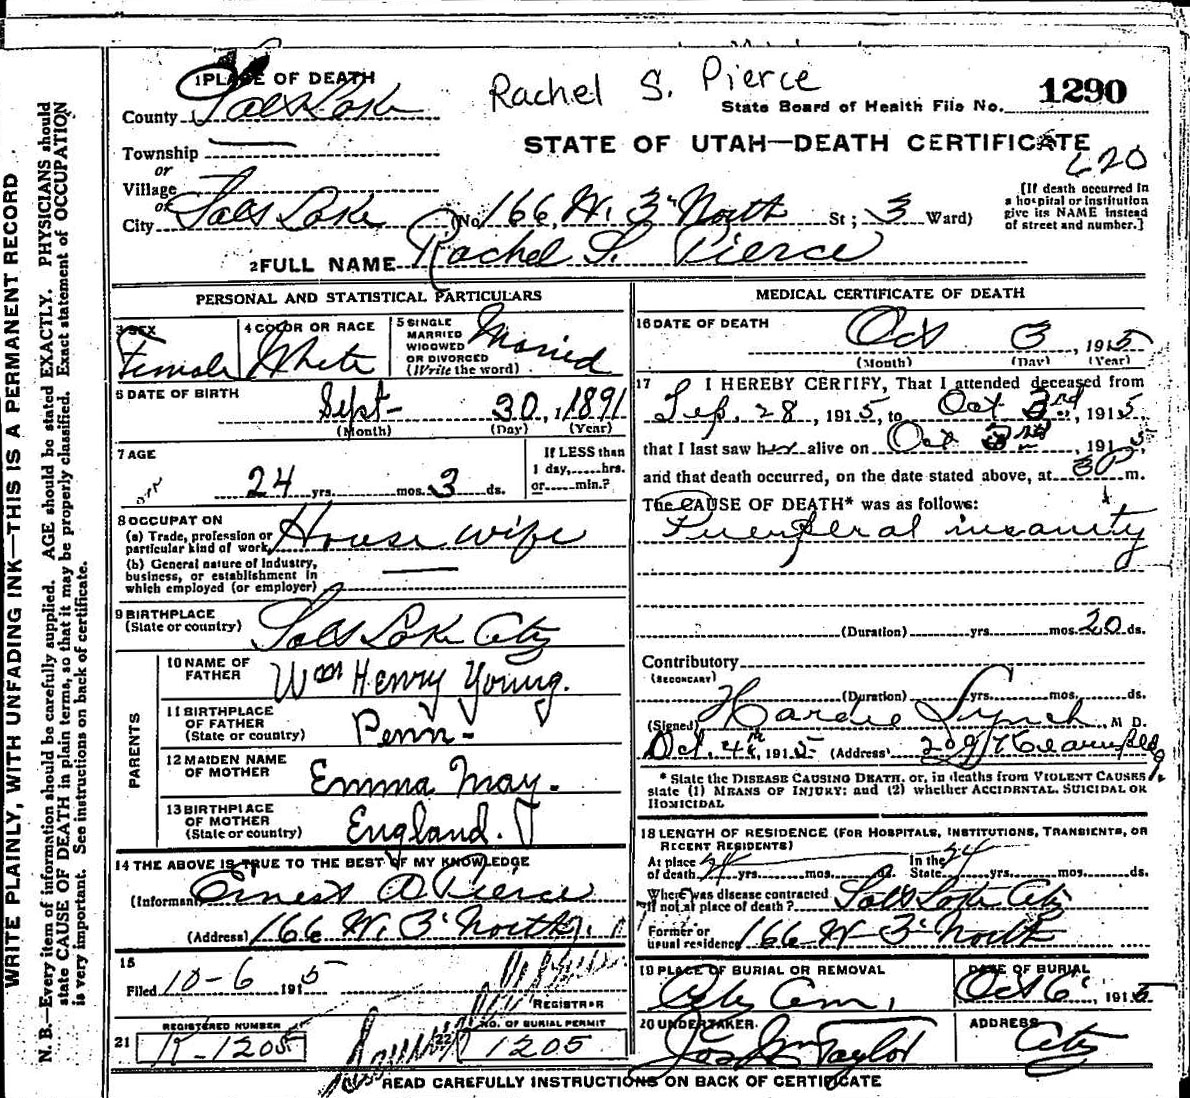 Rachel S. Pierce
1290
State Board of Health File No.
STATE OF UTAH—DEATH CERTIFICATE
620
1 PLACE OF DEATH
County Salt Lake
Township
or
Village
or
City Salt Lake (No 166 W. 3 North St; 3 Ward)
[If death occurred in
a hospital or institution
give its NAME instead
of street and number.]
2 FULL NAME Rachel S. Pierce
PERSONAL AND STATISTICAL PARTICULARS
3 SEX Female
4 COLOR OR RACE White
5 SINGLE
MARRIED
WIDOWED
OR DIVORCED
(Write the word) Married
6 DATE OF BIRTH
Sept 30, 1891
(Month) (Day) (Year)
7 AGE
24 yrs. mos. 3 ds.
If LESS than
1 day,......hrs.
or......min.?
8 OCCUPATION
(a) Trade, profession or
particular kind of work House wife
(b) General nature of Industry,
business, or establishment in
which employed (or employer)
9 BIRTHPLACE
(State or country) Salt Lake City
PARENTS
10 NAME OF
FATHER Wm Henry Young.
11 BIRTHPLACE
OF FATHER
(State or country) Penn-
12 MAIDEN NAME
OF MOTHER Emma May.
13 BIRTHPLACE
OF MOTHER
(State or country) England.
14 THE ABOVE IS TRUE TO THE BEST OF MY KNOWLEDGE
(Informant Ernest D Pierce
(Address) 166 W. 3 North
15
Filed 10-6 1915
REGISTRAR
REGISTERED NUMBER
21 K-1205
22 NO. OF BURIAL PERMIT
1205
MEDICAL CERTIFICATE OF DEATH
16 DATE OF DEATH
Oct 3, 1915
(Month) (Day) (Year)
17 I HEREBY CERTIFY, That I attended deceased from
Sep. 28, 1915, to Oct 3rd, 1915,
that I last saw her alive on Oct 3rd, 1915,
and that death occurred, on the date stated above, at 3 P m.
The CAUSE OF DEATH* was as follows:
Puerperal insanity
(Duration) yrs. mos. 20 ds.
Contributory
(SECONDARY)
(Duration) yrs. mos. ds.
(Signed) Hardie Lynch, M D.
Oct. 4th, 1915 (Address) 209
* State the DISEASE CAUSING DEATH, or, in deaths from VIOLENT CAUSES
state (1) MEANS OF INJURY; and (2) whether ACCIDENTAL, SUICIDAL OR
HOMICIDAL
18 LENGTH OF RESIDENCE (FOR HOSPITALS, INSTITUTIONS, TRANSIENTS, OR
RECENT RESIDENTS)
At place
of death 24 yrs. mos. ds.
In the
State 24 yrs. mos. ds.
Where was disease contracted
If not at place of death? Salt Lake City
Former or
usual residence 166 W 3 North
19 PLACE OF BURIAL OR REMOVAL
City Cem,
DATE OF BURIAL
Oct 6, 1915
20 UNDERTAKER
Jos Wm Taylor
ADDRESS
City
READ CAREFULLY INSTRUCTIONS ON BACK OF CERTIFICATE
WRITE PLAINLY, WITH UNFADING INK—THIS IS A PERMANENT RECORD
N. B.—Every item of information should be carefully supplied. AGE should be stated EXACTLY. PHYSICIANS should
state CAUSE OF DEATH in plain terms, so that it may be properly classified. Exact statement of OCCUPATION
is very important. See instructions on back of certificate.